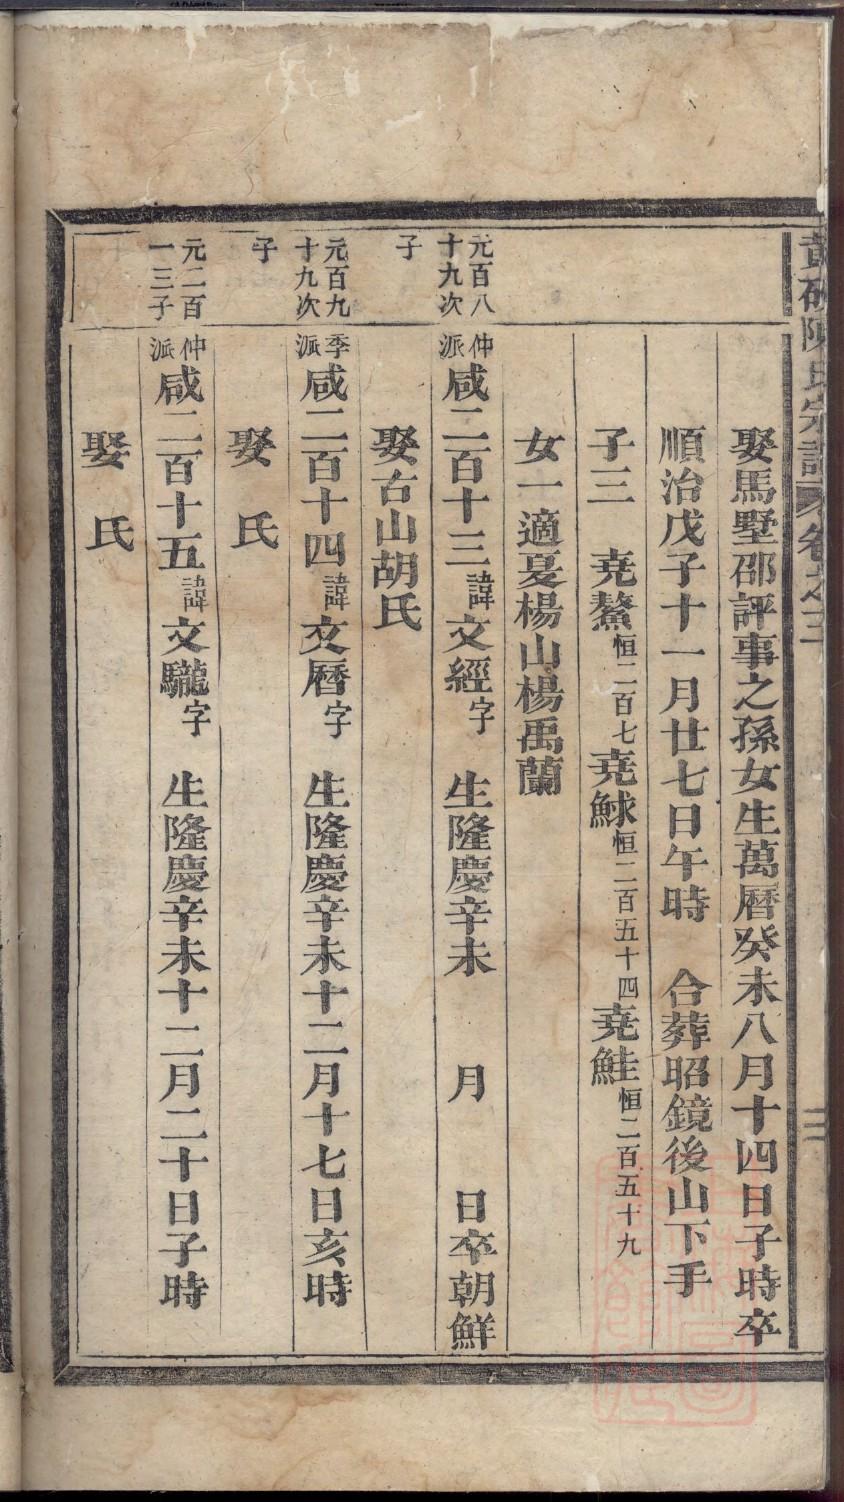 陳氏宗譜 卷之三
三
娶馬墅邵評事之孫女生萬曆癸未八月十四日子時卒
順治戊子十一月廿七日午時 合葬昭鏡後山下手
子三 堯鰲恒二百七堯鯄恒二百五十四堯鮭恒二百五十九
女一適夏楊山楊禹蘭
元百八十九次子
仲派咸二百十三諱文經字 生隆慶辛未 月 日卒朝鮮
娶古山胡氏
元百九十九次子
季派咸二百十四諱文曆字 生隆慶辛未十二月十七日亥時
娶 氏
元二百一三子
仲派咸二百十五諱文驣字 生隆慶辛未十二月二十日子時
娶 氏